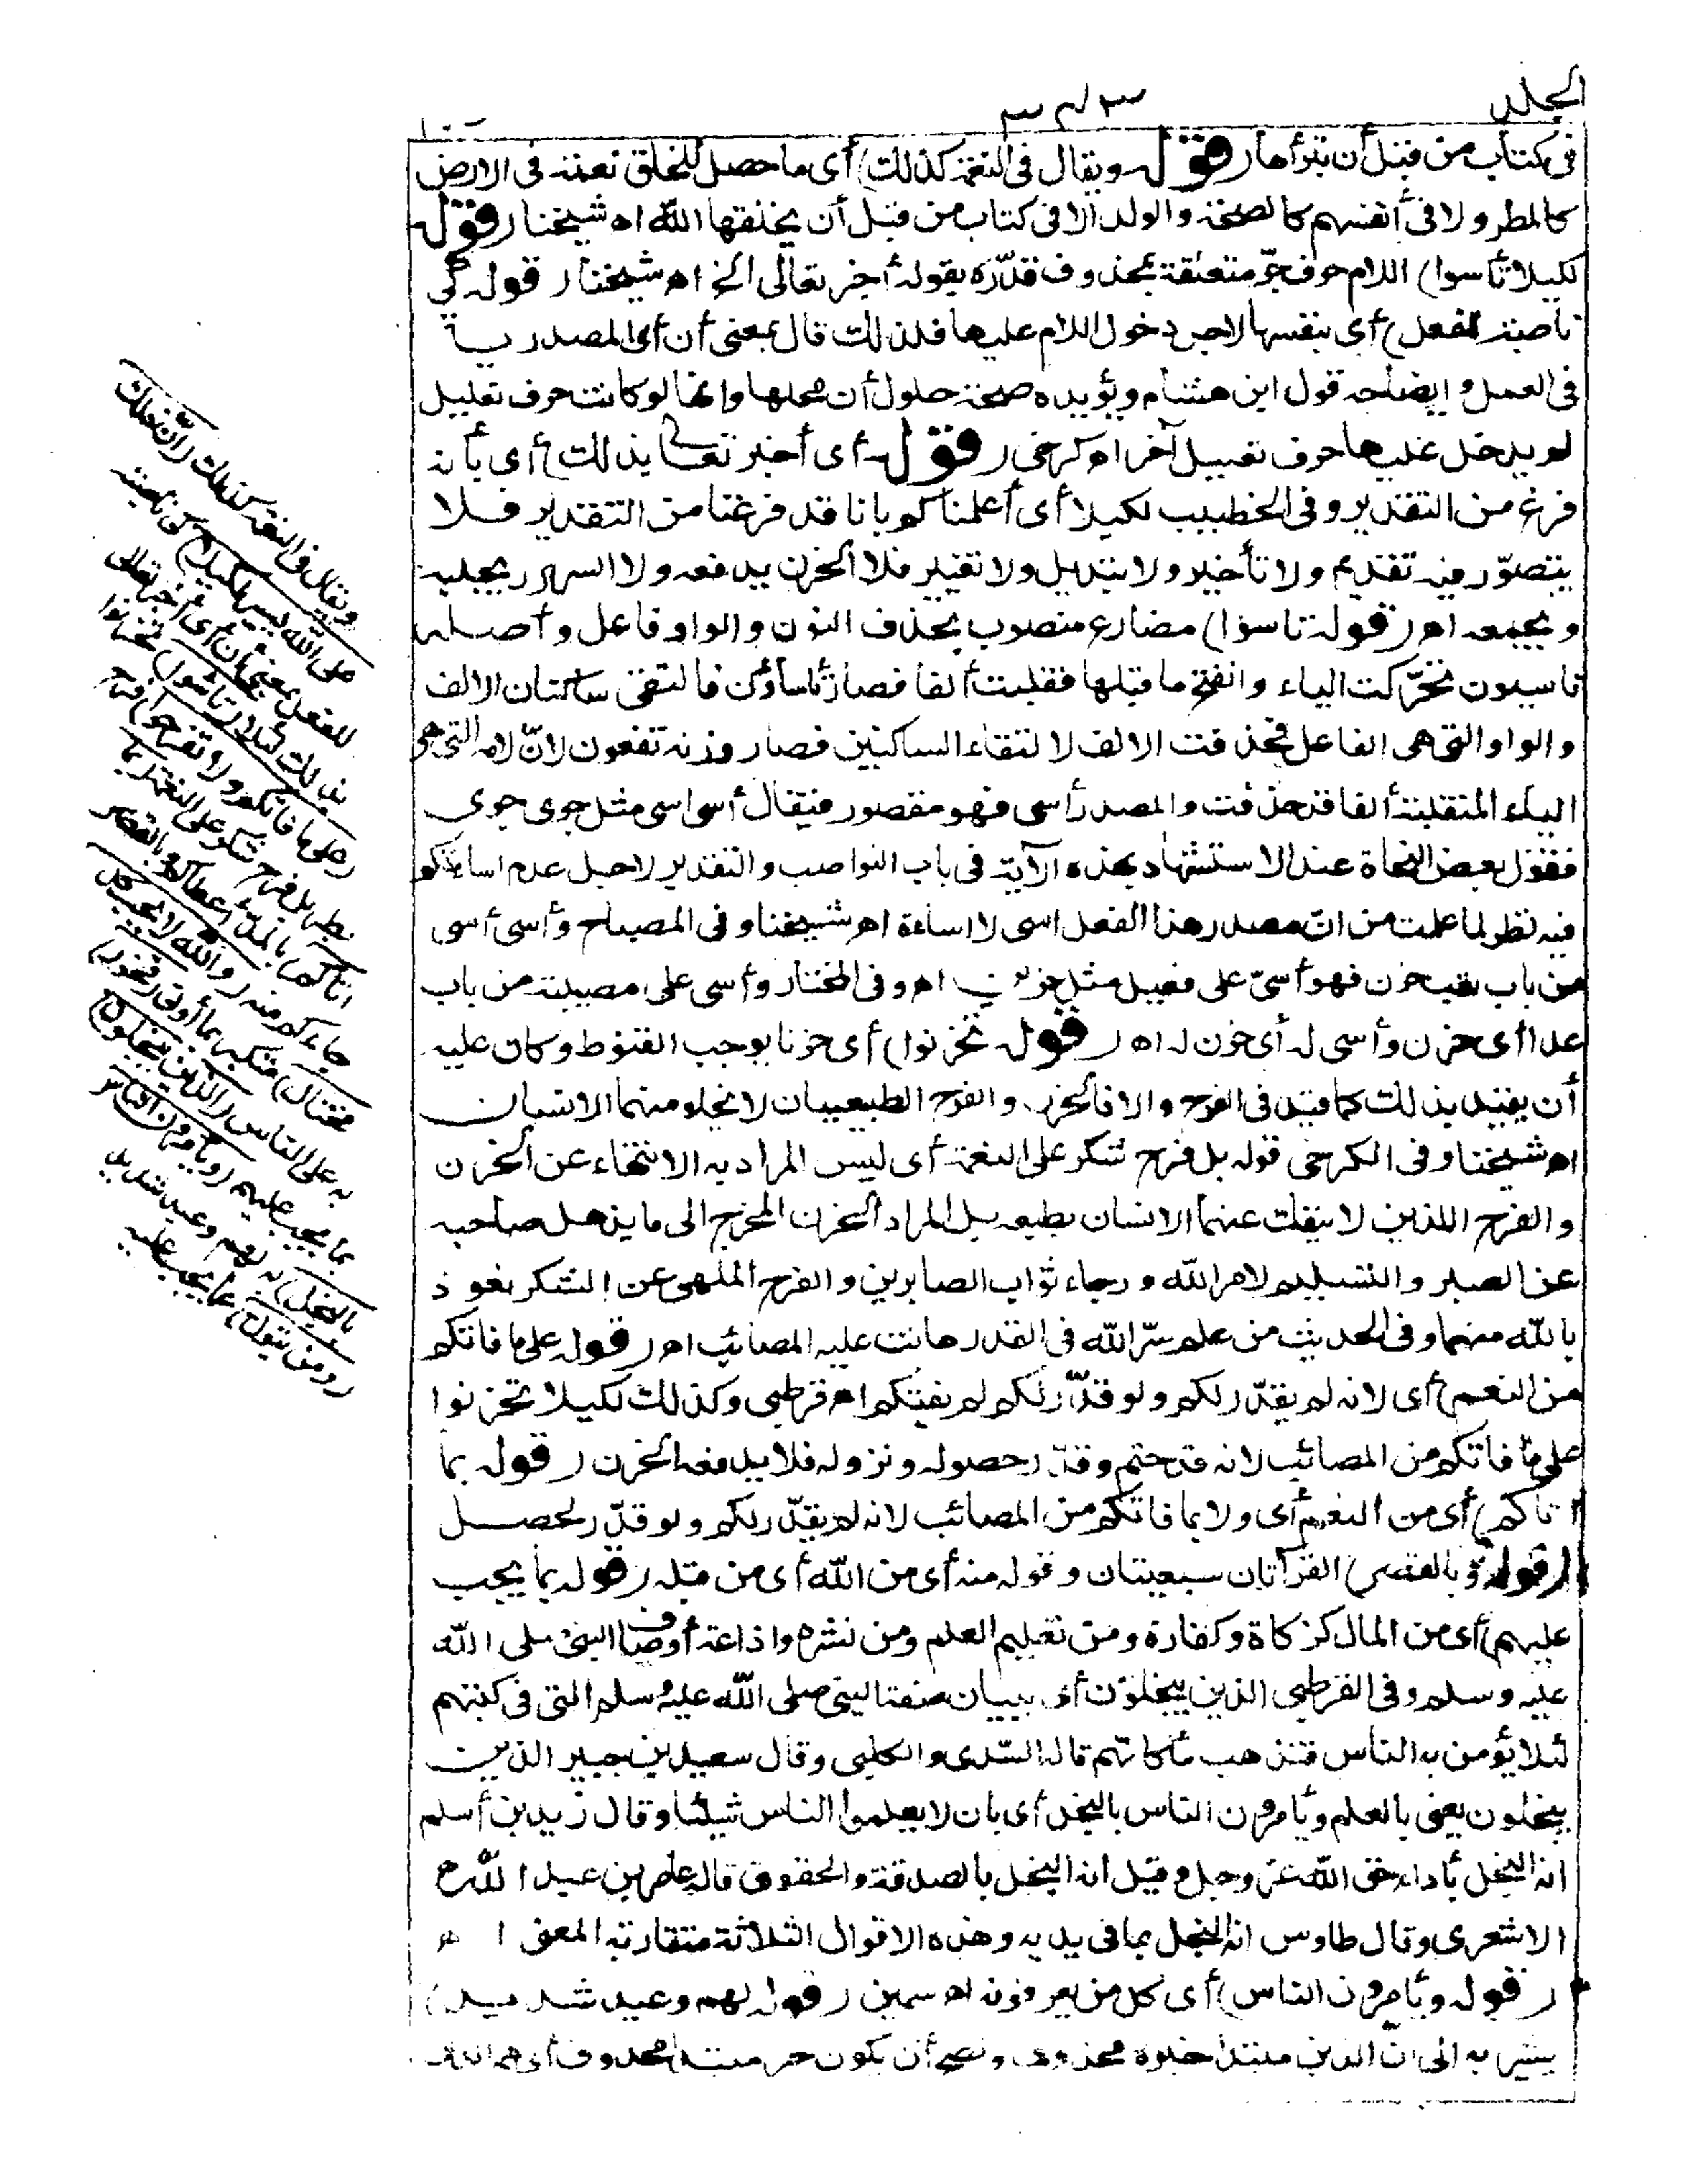 الحديد
في كتاب من قبل أن نبرأها (قوله ويقال في النعمة كذلك) أي ما حصل للخلق نعمة في الارض
كالمطر ولا في أنفسهم كالصحة والولد الا في كتاب من قبل أن يخلقها الله اه شيخنا (قوله
لكيلا تأسوا) اللام حرف جرّ متعلقة بمحذوف قدّره بقوله أخبر تعالى الخ اه شيخنا (قوله كي
ناصبة للفعل) أي بنفسها لاجل دخول اللام عليها فلذلك قال بمعنى أن أي المصدرية
في العمل وايضاحه قول ابن هشام ويؤيده صحة حلول أن محلها وانها لو كانت حرف تعليل
لم يدخل عليها حرف تعليل آخر اه كرخي (قوله أي أخبر تعالى بذلك) أي بأنه
فرغ من التقدير وفي الخطيب لكيلا أي أعلمناكم بانا قد فرغنا من التقدير فلا
يتصوّر فيه تقديم ولا تأخير ولا تبديل ولا تغيير فلا الحزن يدفعه ولا السرور يجلبه
ويجمعه اه (قوله تاسوا) مضارع منصوب بحذف النون والواو فاعل وأصله
تاسيون تحرّكت الياء وانفتح ما قبلها فقلبت ألفا فصار تأساون فالتقى ساكنان الالف
والواو التي هي الفاعل فحذفت الالف لالتقاء الساكنين فصار وزنه تفعون لانّ لامه التي هي
الياء المنقلبة ألفا قد حذفت والمصدر أسى فهو مقصور فيقال أسى اسى مثل جوى جوى
فقول بعض النحاة عند الاستشهاد بهذه الآية في باب النواصب والتقدير لاجل عدم اساءتكم
فيه نظر لما علمت من انّ مصدر هذا الفعل اسى لا اساءة اه شيخنا وفي المصباح وأسى أسى
من باب تعب حزن فهو أسىّ على فعيل مثل حزين اه وفي المختار وأسى على مصيبته من باب
عدا أي حزن وأسى له أي حزن له اه (قوله تحزنوا) أي حزنا يوجب القنوط وكان عليه
أن يقيد بذلك كما قيد في الفرح والا فالحزن والفرح الطبيعيان لا يخلو منهما الانسان
اه شيخنا وفي الكرخي قوله بل فرح شكر على النعمة أي ليس المراد به الانتهاء عن الحزن
والفرح اللذين لا ينفك عنهما الانسان بطبعه بل المراد الحزن المخرج الى ما يذهل صاحبه
عن الصبر والتسليم لامر الله ورجاء ثواب الصابرين والفرح الملهي عن الشكر نعوذ
بالله منهما وفي الحديث من علم سرّ الله في القدر هانت عليه المصائب اه (قوله على ما فاتكم
من النعم) أي لانه لم يقدّر لكم ولو قدّر لكم لم يفتكم اه قرطبي وكذلك لكيلا تحزنوا
على ما فاتكم من المصائب لانه قد حتم وقدّر حصوله ونزوله فلا يدفعه الحزن (قوله بما
آتاكم) أي من النعم أي ولا بما فاتكم من المصائب لانه لم يقدّر لكم ولو قدّر لحصل
(قوله وبالقصر) القرآتان سبعيتان وقوله منه أي من الله أي من قبله (قوله بما يجب
عليهم) أي من المال كزكاة وكفارة ومن تعليم العلم ومن نشره واذاعة أوصاف النبي صلى الله
عليه وسلم وفي القرطبي الذين يبخلون أي ببيان صفة النبي صلى الله عليه وسلم التي في كتبهم
لئلا يؤمن به الناس فتذهب مأكلتهم قاله السّدى والكلبي وقال سعيد بن جبير الذين
يبخلون يعني بالعلم ويأمرون الناس بالبخل أي بان لا يعلموا الناس شيئا وقال زيد بن أسلم
انه البخل بأداء حق الله عزّ وجل وقيل انه البخل بالصدقة والحقوق قاله عامر بن عبد الله
الاشعري وقال طاوس انه البخل بما في يديه وهذه الاقوال الثلاثة متقاربة المعنى اه
(قوله ويأمرون الناس) أي كل من يعرفونه اه سمين (قوله لهم وعيد شديد)
يشير به الى انّ الذين مبتدأ خبره محذوف ويصح أن يكون خبر مبتدا محذوف أي هم الذين
ويقال في النعمة كذلك (انّ ذلك
على الله يسير لكيلا) كي ناصبة
للفعل بمعنى أن أي أخبر تعالى
بذلك لئلا (تاسوا) تحزنوا
(على ما فاتكم ولا تفرحوا) فرح
بطر بل فرح شكر على النعمة (بما
آتاكم) بالمدّ أعطاكم وبالقصر
جاءكم منه (والله لا يحب كل
مختال) متكبر بما أوتي (فخور)
به على الناس (الذين يبخلون)
بما يجب عليهم (ويأمرون الناس
بالبخل) به لهم وعيد شديد
(ومن يتول) عما يجب عليه